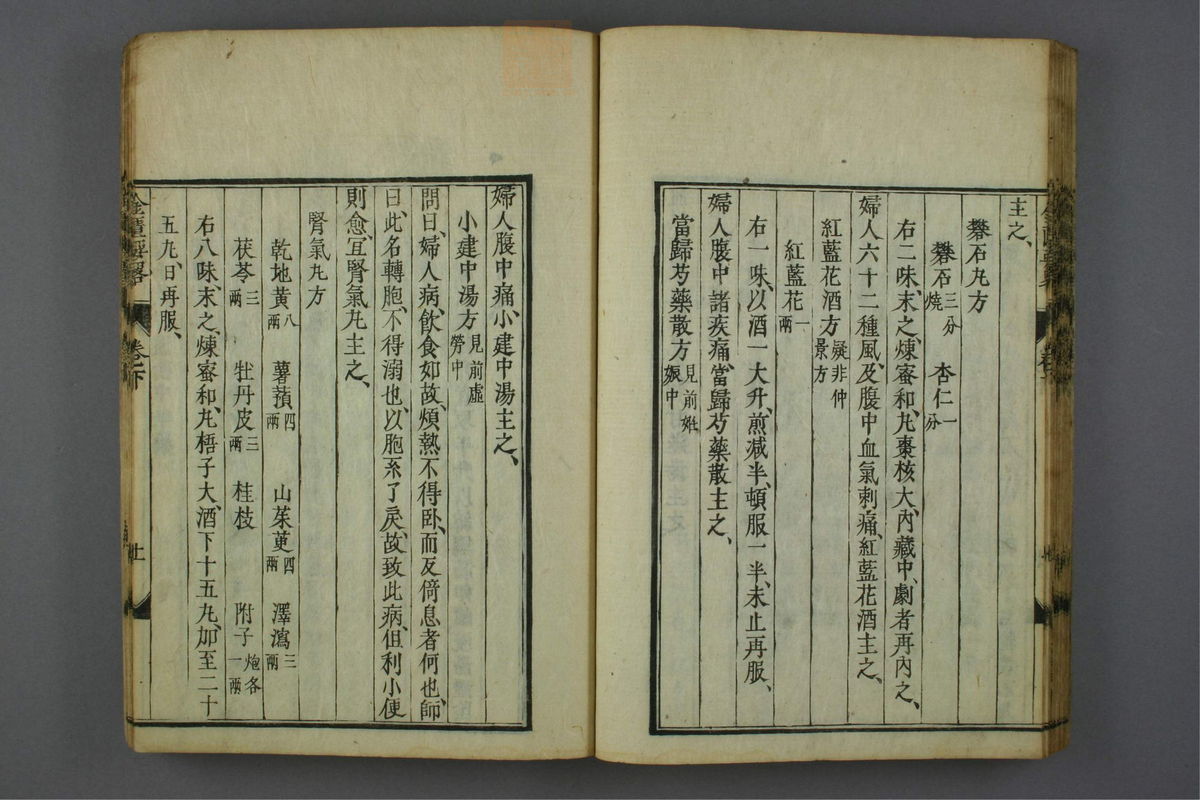 主之、
礬石丸方
礬石三分燒 杏仁一分
右二味、末之、煉蜜和、丸棗核大、內藏中、劇者再內之、
婦人六十二種風、及腹中血氣刺痛、紅藍花酒主之、
紅藍花酒方疑非仲景方
紅藍花一兩
右一味、以酒一大升、煎減半、頓服一半、未止再服、
婦人腹中諸疾痛、當歸芍藥散主之、
當歸芍藥散方見前姙娠中
婦人腹中痛、小建中湯主之、
小建中湯方見前虛勞中
問曰、婦人病、飲食如故、煩熱不得臥、而反倚息者何也、師
曰、此名轉胞、不得溺也、以胞系了戾、故致此病、但利小便
則愈、宜腎氣丸主之、
腎氣丸方
乾地黃八兩 薯蕷四兩 山茱萸四兩 澤瀉三兩
茯苓三兩 牡丹皮三兩 桂枝 附子炮各一兩
右八味、末之、煉蜜和、丸梧子大、酒下十五丸、加至二十
五丸、日再服、
卷下